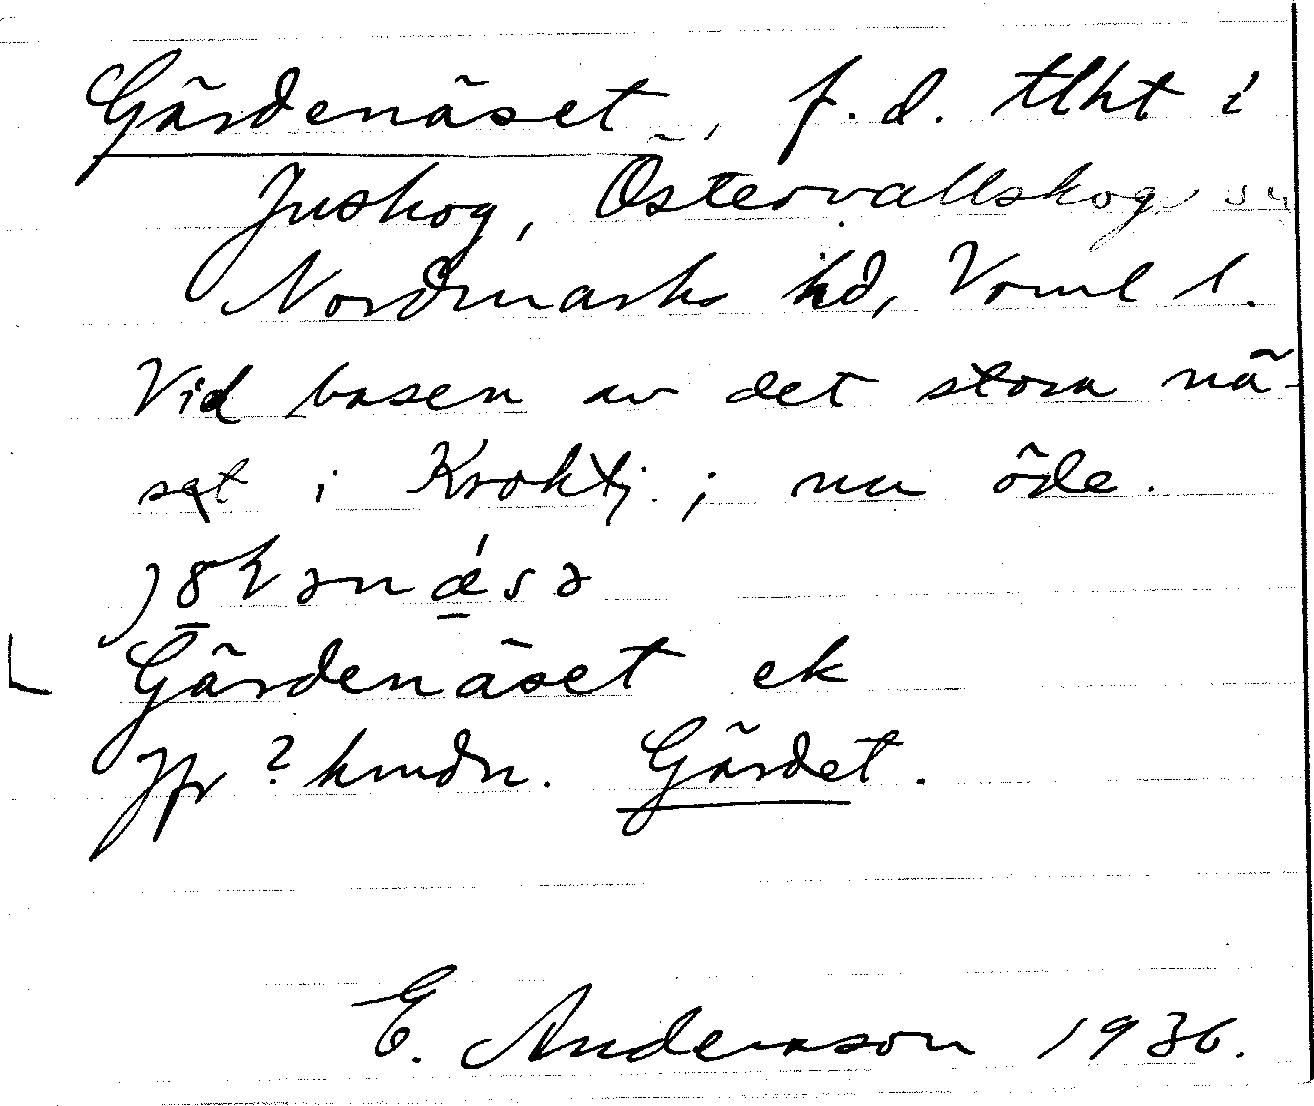 Gärdenäset, f.d. tlht i
Juskog, Östervallskog sn
Nordmarks hd, Vrml l.
Vid basen av det stora nä-
set i Kroktj.; nu öde.
Gärdenäset ek
Jfr ? hmdn. Gärdet.
E. Andersson 1936.